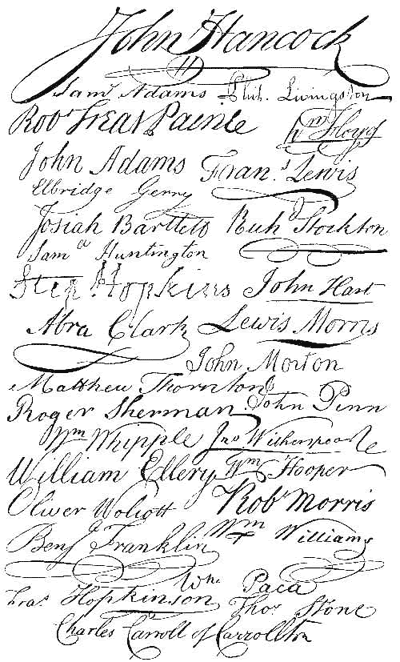 John Hancock
Saml Adams Phil. Livingston
Robt Treat Paine Wm Floyd
John Adams Frans. Lewis
Elbridge Gerry
Josiah Bartlett Richd Stockton
Saml Huntington
Step Hopkins John Hart
Abra Clark Lewis Morris
John Morton
Matthew Thornton
Roger Sherman John Penn
Wm Whipple Jno Witherspoon
William Ellery Wm Hooper
Oliver Wolcott Robt Morris
Benj Franklin Wm Williams
Wm Paca
Fras Hopkinson Thos Stone
Charles Carroll of Carrollton